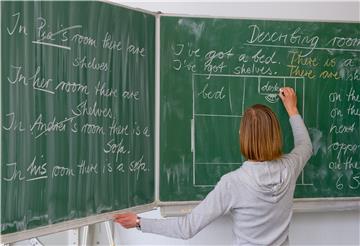 In Pia's room there are
shelves.
In her room there are
shelves.
In Andrei's room there is a
sofa.
In his room there is a sofa.
Describing room
I've got a bed. There is a
I've got shelves. There are
bed
on the
on the
opp